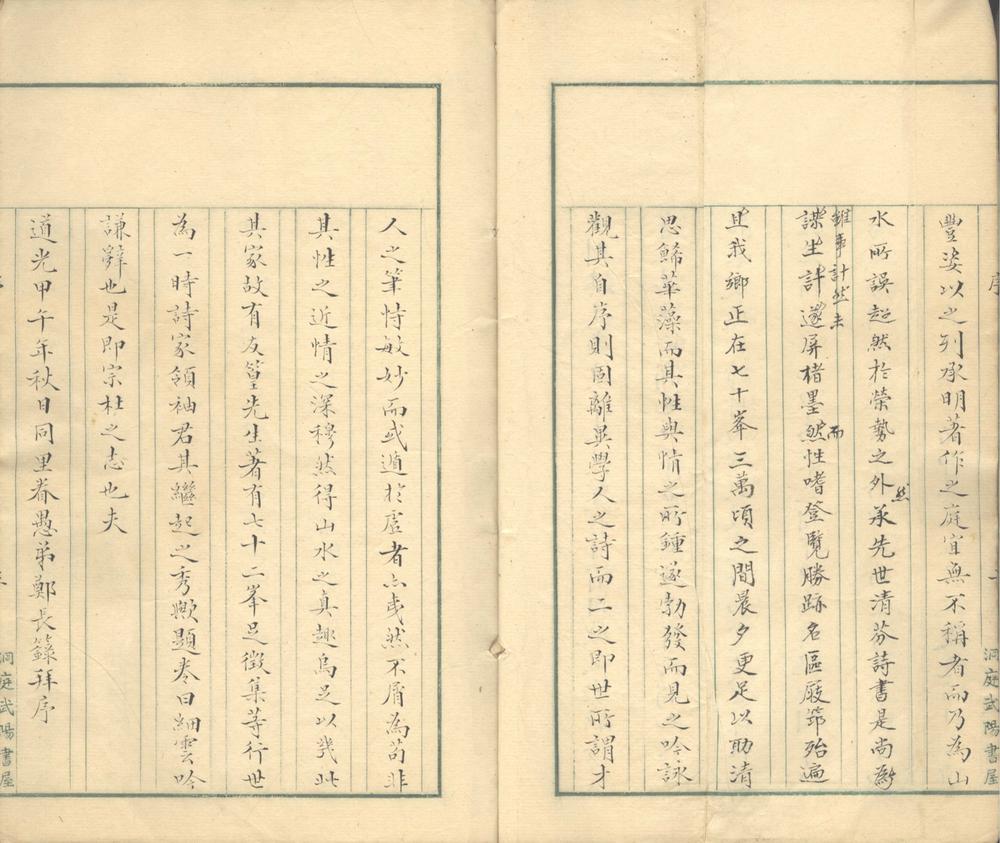 序
洞庭武陽書屋
豐姿以之列承明著作之庭宜無不稱者而乃為山
水所誤超然於榮勢之外然承先世清芬詩書是尚
雖事計然未
謀生計遂屏楮墨然而性嗜登覽勝跡名區屐笻殆遍
且我鄉正在七十峯三萬頃之間晨夕更足以助清
思鯑華藻而其性與情之所鍾遂勃發而見之吟詠
觀其自序則固離異學人之詩而二之即世所謂才
人之筆恃敏妙而或遁於虛者亦夷然不屑為苟非
其性之近情之深穆然得山水之真趣烏足以幾此
其家故有友篁先生著有七十二峯足徵集等行世
為一時詩家領袖君其繼起之秀歟題卷曰細雲吟
謙辭也是即宗杜之志也夫
道光甲午年秋日同里眷愚弟鄭長籙拜序
洞庭武陽書屋